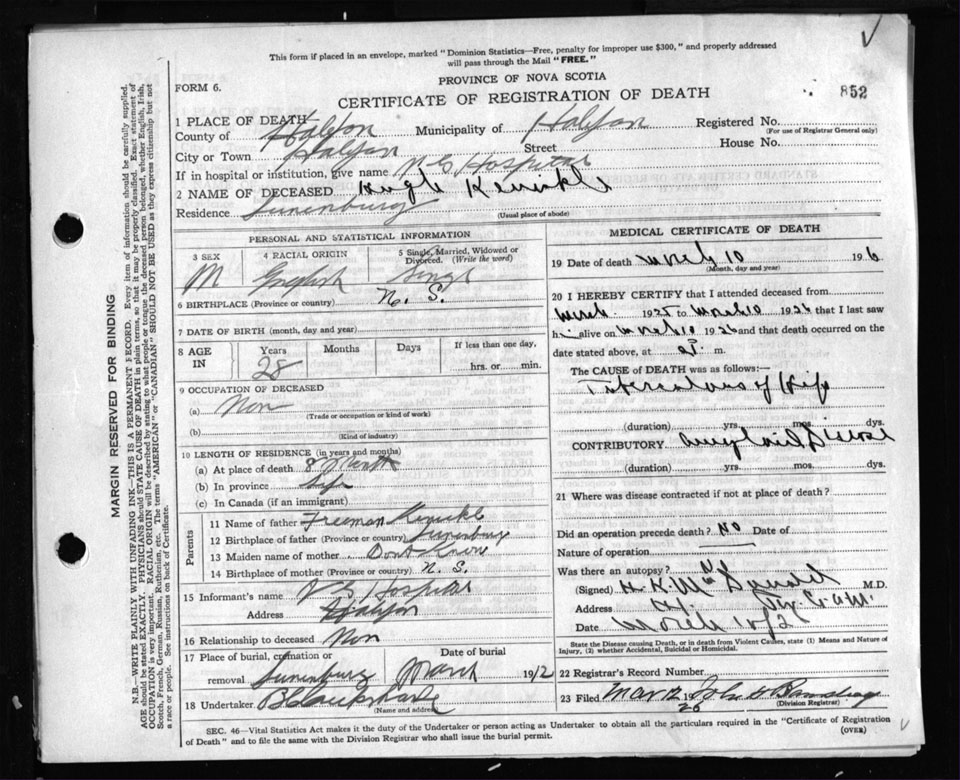 This form if placed in an envelope, marked "Dominion Statistics—Free, penalty for improper use $300," and properly addressed
will pass through the Mail "FREE."
PROVINCE OF NOVA SCOTIA
FORM 6.
CERTIFICATE OF REGISTRATION OF DEATH
852
1 PLACE OF DEATH
County of Halifax Municipality of Halifax Registered No.
(For use of Registrar General only)
City or Town Halifax Street House No.
If in hospital or institution, give name N S Hospital
2 NAME OF DECEASED Hugh
Residence Lunenburg (Usual place of abode)
PERSONAL AND STATISTICAL INFORMATION
3 SEX 4 RACIAL ORIGIN 5 Single, Married, Widowed or Divorced. (Write the word)
M English Single
6 BIRTHPLACE (Province or country) N. S.
7 DATE OF BIRTH (month, day and year)
8 AGE IN Years Months Days If less than one day,
28 hrs. or min.
9 OCCUPATION OF DECEASED
(a) Non
(Trade or occupation or kind of work)
(b)
(Kind of industry)
10 LENGTH OF RESIDENCE (in years and months)
(a) At place of death 8 Month
(b) In province Life
(c) In Canada (if an immigrant)
Parents
11 Name of father Freeman
12 Birthplace of father (Province or country) Lunenburg
13 Maiden name of mother Dont Know
14 Birthplace of mother (Province or country) N. S.
15 Informant's name N S Hospital
Address Halifax
16 Relationship to deceased Non
17 Place of burial, cremation or removal Date of burial
Lunenburg March 1912
18 Undertaker
(Name and address)
MEDICAL CERTIFICATE OF DEATH
19 Date of death March 10 1926
(Month, day and year)
20 I HEREBY CERTIFY that I attended deceased from
March 1925 to March 10 1926 that I last saw
h alive on March 10 1926 and that death occurred on the
date stated above, at m.
The CAUSE of DEATH was as follows:—
Tuberculous of Hip
(duration) yrs. mos. dys.
CONTRIBUTORY Amyloid Disease
(duration) yrs. mos. dys.
21 Where was disease contracted if not at place of death?
Did an operation precede death? No Date of
Nature of operation
Was there an autopsy? No
(Signed) H. K. McDonald M.D.
Address
Date March 10/26
State the Disease causing Death, or in death from Violent Causes, state (1) Means and Nature of
Injury, (2) whether Accidental, Suicidal or Homicidal.
22 Registrar's Record Number
23 Filed Mar 12 26 John
(Division Registrar)
SEC. 46—Vital Statistics Act makes it the duty of the Undertaker or person acting as Undertaker to obtain all the particulars required in the "Certificate of Registration
of Death" and to file the same with the Division Registrar who shall issue the burial permit.
(OVER)
MARGIN RESERVED FOR BINDING
N.B.—WRITE PLAINLY WITH UNFADING INK—THIS IS A PERMANENT RECORD. Every item of information should be carefully supplied.
AGE should be stated EXACTLY. PHYSICIANS should STATE CAUSE OF DEATH in plain terms, so that it may be properly classified. Exact statement of
OCCUPATION is very important. RACIAL ORIGIN will be described by stating to what people or tongue the deceased person belonged, whether English, Irish,
Scotch, French, German, Russian, Ruthenian, etc. The terms "AMERICAN" or "CANADIAN" SHOULD NOT BE USED as they express citizenship but not
a race or people. See instructions on back of Certificate.